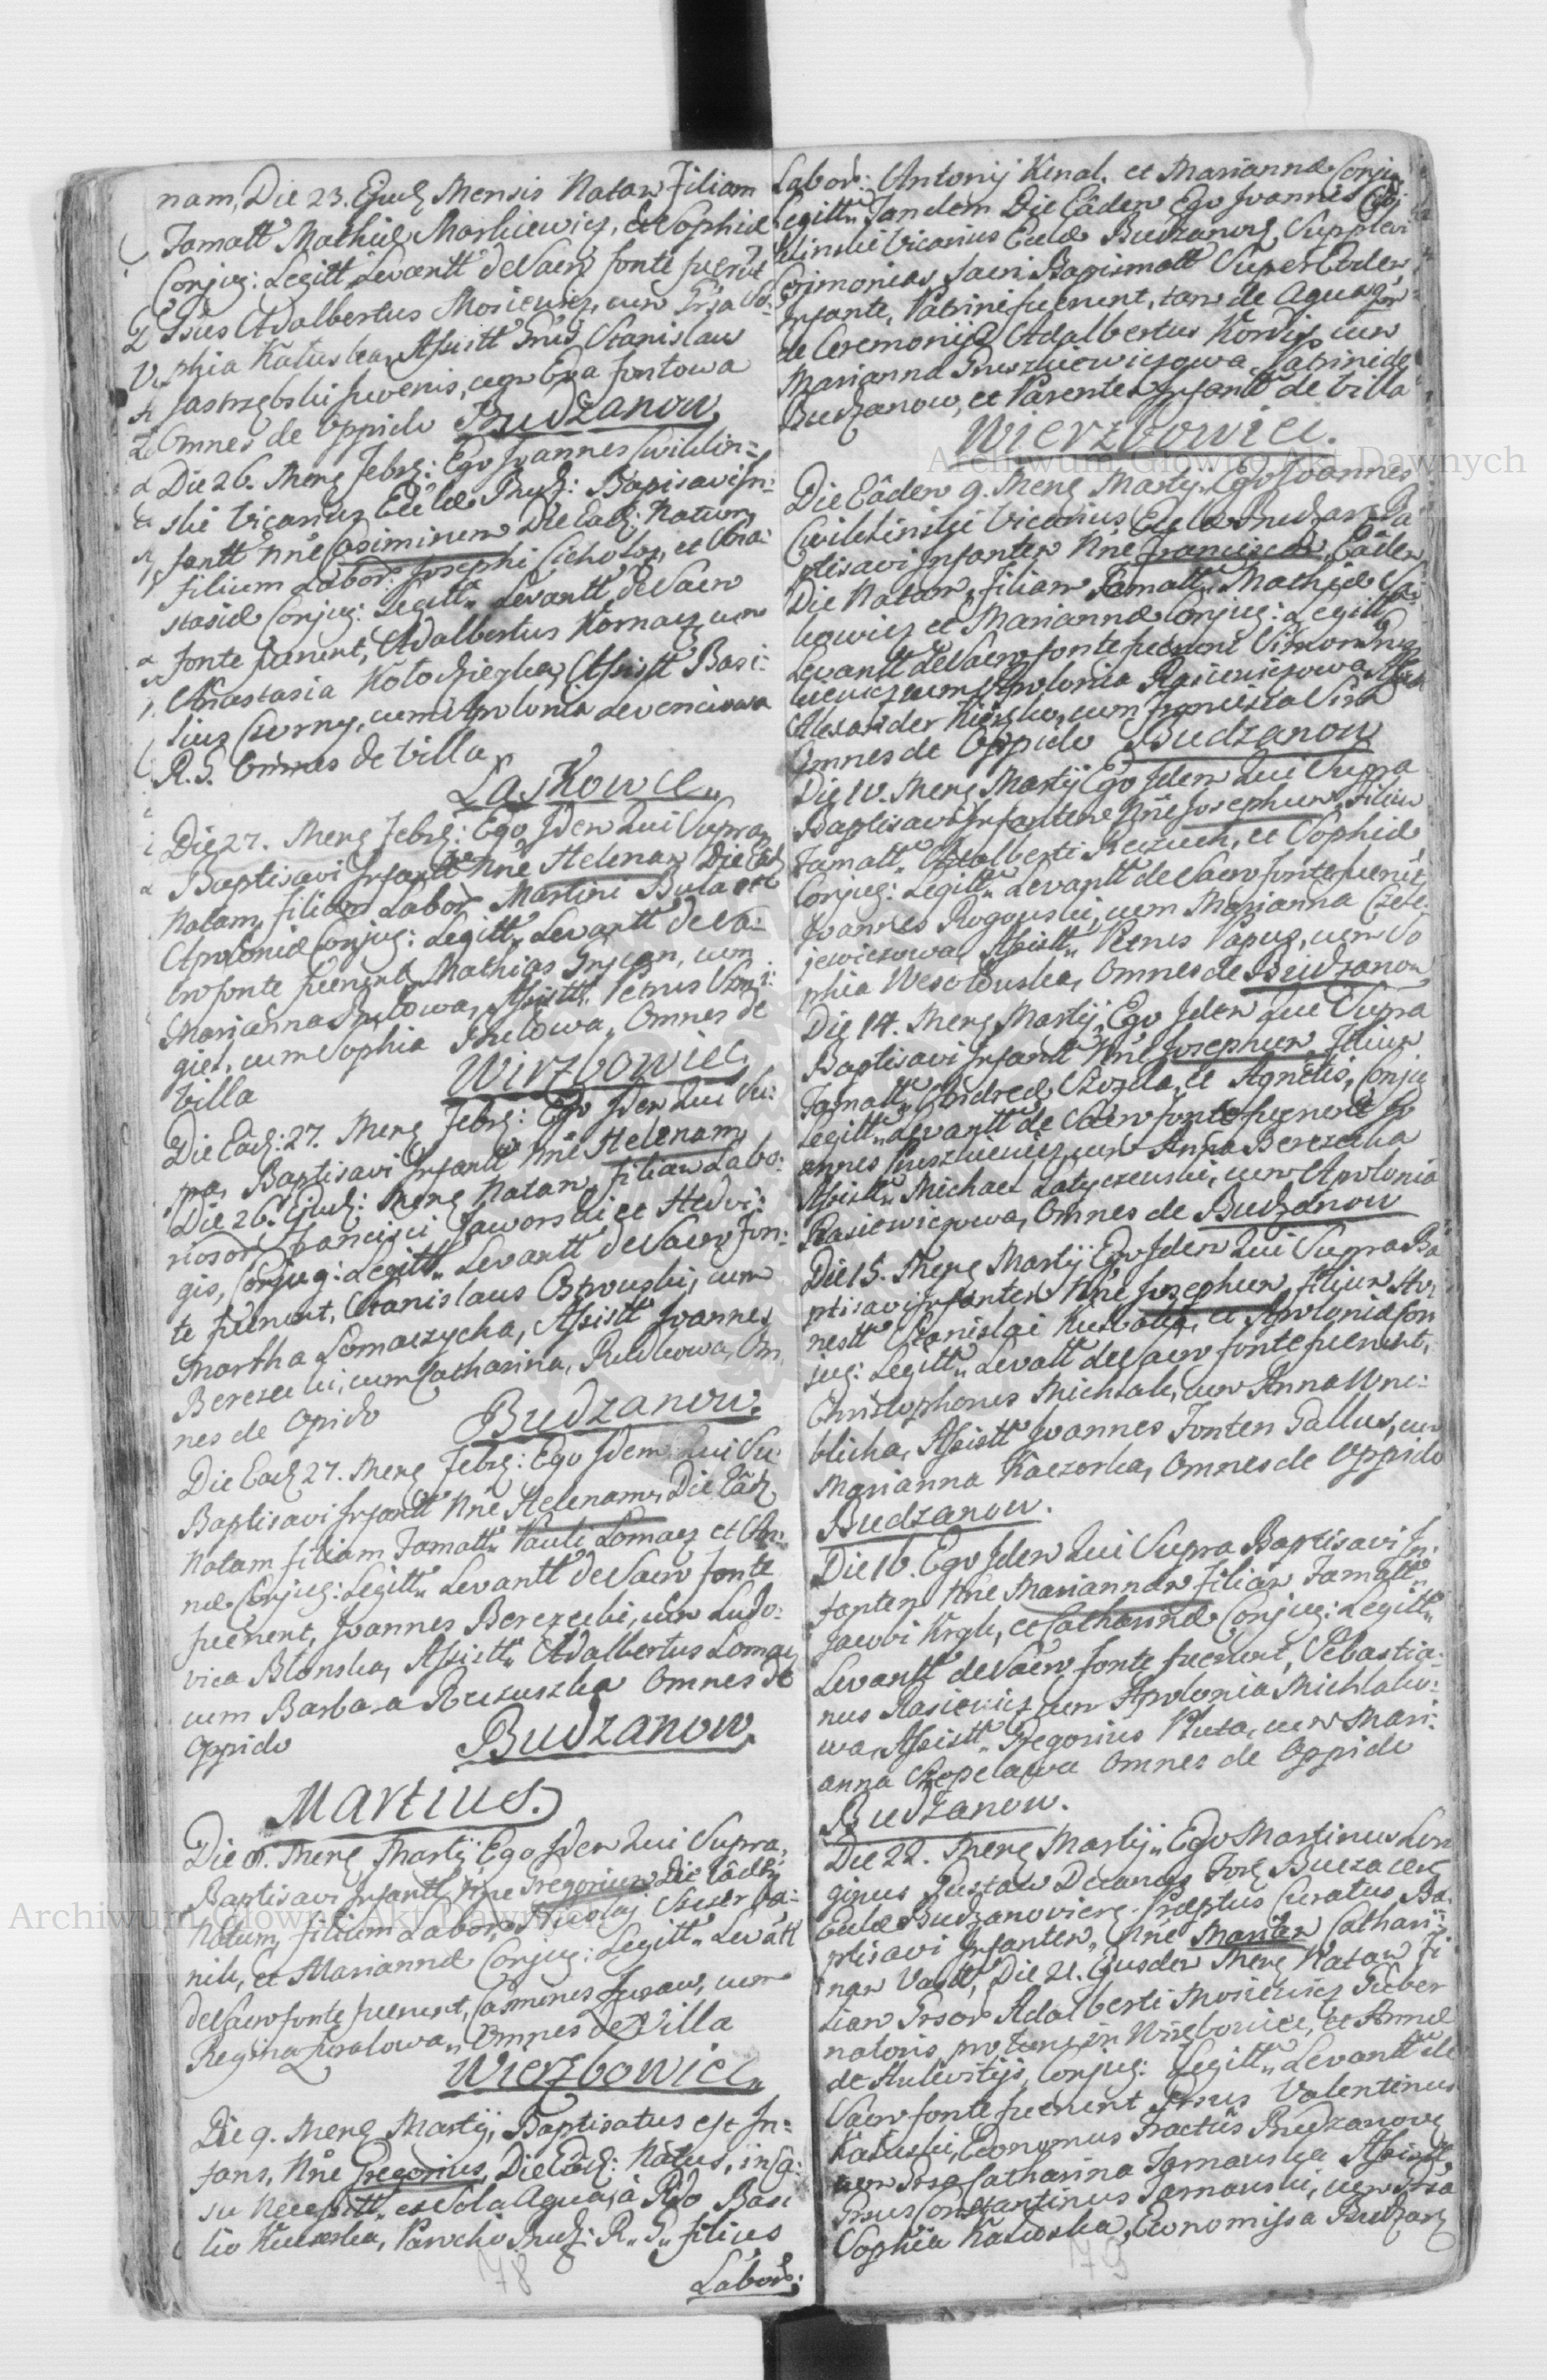 nam, Die 23. Ejusd Mensis Natam Filiam
Famatt Mathiæ Markiewicz, et Sophiæ
Conjug: Legitt Levantt de Sacro fonte fuerūt
Gsus Adalbertus Mosiewicz, cum Grsa So:
phia Katuska, Assistt Gnūs Stanislaus
Jastrzębski Juvenis, cum Eva Fontowa
Omnes de Oppido Budzanow
Die 26. Mens Febr: Ego Joannes Cwiklin=
ski Vicarius Ecclæ Budz: Bapisavi In:
fantt Nne Casimirum Die Ead: Natum
filium Labor: Josephi Cichołoz, et Ana:
stasiæ Conjug: Legitt Levantt de Sacro
fonte fuerunt, Adalbertus Kornacz cum
Anastasia Kołodzieyka, Assistt Basi:
lius Czerny, cum Apolonia
R. G. Omnes de Villa
Laskowce
Die 27. Mens Febr: Ego Idem Qui Supra
Baptisavi Infantt Nne Helenam Die Ead
Natam, filiam Labor Martini Bula et
Apoloniæ Conjug: Legitt Levantt de Sa:
cro fonte fuerunt Mathias cum
Marianna Assistt Petrus
giel, cum Sophia Omnes de
Villa Wirzbowiec
Die Ead: 27. Mens Febr: Ego Idem Qui Su:
pra, Baptisavi Infantt Nne Helenam,
Die 26. Ejusd: Mens Natam, filiam Labo:
riosor Francisci Jaworski et Hedvi:
gis, Conjug: Legitt Levantt de Sacro Fon:
te fuerunt, Stanislaus Ostrowski, cum
Martha Lomaczycha, Assistt Joannes
Berezecki, cum Catharina, Rudkowa, Om
nes de Opido Budzanow.
Die Ead 27. Mens Febr: Ego Idem Qui Su
Baptisavi Infantt Nne Helenam, Die Ead
Natam filiam Famatt Pauli Lomacz et An:
næ Conjug: Legitt Levantt de Sacro fonte
fuerunt, Joannes Berezecki, cum Ludo:
vica Blonska, Assistt Adalbertus Lomacz
cum Barbara Omnes de
Oppido Budzanow.
Martius.
Die 8. Mens Martij Ego Idem Qui Supra,
Baptisavi Infantt Nne Gregorium Die Eadem
Natum, filium Labor, Nicolaj
et Mariannæ Conjug: Legitt Levātt
de Sacro fonte fuerunt, Casimirus cum
Regina Omnes de Villa
Wierzbowiec
Die 9. Mens Martij, Baptisatus est In:
fans, Nne Gregorius, Die Ead: Natus, in Ca:
su Necessitt ex Sola Aqua, à Rdo Basi
lio Parocho Budz: R. G. filius
Labor:
Labor: Antonij Kenal. et Mariannæ Conjug
Legitt Tandem Die Eadem Ego Joannes Cwi
klinski Vicarius Ecclæ Budzanow, Supplevi
Cerimonias Sacri Bapismatt Super Eodem
Infante, Patrini fuerunt, tam de Aqua qm
de Ceremonijs Adalbertus Kordys cum
Marianna Pruszkiewiczowa. Patrini de
Budzanow, et Parentes Infantt de Villa
Wierzbowiec.
Die Eadem 9. Mens Martij Ego Joannes
Cwiklinski Vicarius Ecclæ Budzan Ba
ptisavi Infantem Nne Franciscam, Eadem
Die Natam, filiam Famatt Mathiæ
kowicz et Mariannæ Conjug: Legitt
Levantt de Sacro fonte fuerunt Simon
cum Apolonia Rasiewiczowa, Assist
Alexander cum Francisca
Omnes de Oppido Budzanow
Die 10. Mens Martij Ego Idem Qui Supra
Baptisavi Infantem Nne Josephum, filium
Famatt Adalberti et Sophiæ
Conjug: Legitt Levantt de Sacro fonte fuerūt
Joannes Rogowski, cum Marianna
jewiczowa, Assistt Petrus Papuz, cum So
phia Wesołowska, Omnes de Budzanow
Die 14. Mens Martij, Ego Idem Qui Supra
Baptisavi Infantt Nne Josephum, Filium
Famatt Andreæ et Agnetis, Conjug
Legitt Levantt de Sacro fonte fuerunt Jo
annes Pruszkiewicz cum Anna Berezecka
Assistt Michael Latyczewski, cum Apolonia
Rasiewiczowa, Omnes de Budzanow
Die 15. Mens Martij Ego Idem Qui Supra Ba
ptisavi Infantem Nne Josephum, filium Ho
nestt Stanislai et Apoloniæ Con
jug: Legitt Levatt de Sacro fonte fuerunt,
Christophorus Michzak, cum Anna Wro:
blicha, Assistt Joannes Fonten Gallus, cum
Marianna Kaczorka, Omnes de Oppido
Budzanow.
Die 16. Ego Idem Qui Supra Baptisavi In:
fantem Nne Mariannam Filiam Famatt
Jacobi et Catharinæ Conjug: Legitt
Levantt de Sacro fonte fuerunt, Sebastia:
nus Rasiewicz cum Apolonia Michlako:
wa, Assistt Gregorius Pluta, cum Mari:
anna Omnes de Oppido
Budzanow.
Die 22. Mens Martij Ego Martinus Lon
ginus Decanus For
Ecclæ Budzanoviens Præptus Curatus, Ba
ptisavi Infantem, Nne Mariam Cathari:
nam Die 21. Ejusdem Mens Natam fi
liam Grsor Adalberti Mosiewicz Guber
natoris pro tunc in Wirzbowiec, et Annæ
de Conjug: Legitt Levantt de
Sacro fonte fuerunt Grsus Valentinus
Katuski, Economus Tractūs Budzanow
cum Grsa Catharina Tarnawska Assistt
Grsus Constantinus Tarnawski, cum Grsa
Sophia Katuska, Economissa Budzan
78
79
Archiwum Główne Akt Dawnych
Archiwum Główne Akt Dawnych